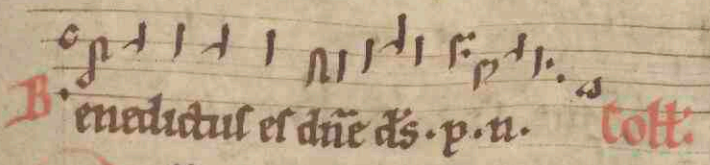 Benedictus es dn̄e ds̄·p·n· Coll̄: